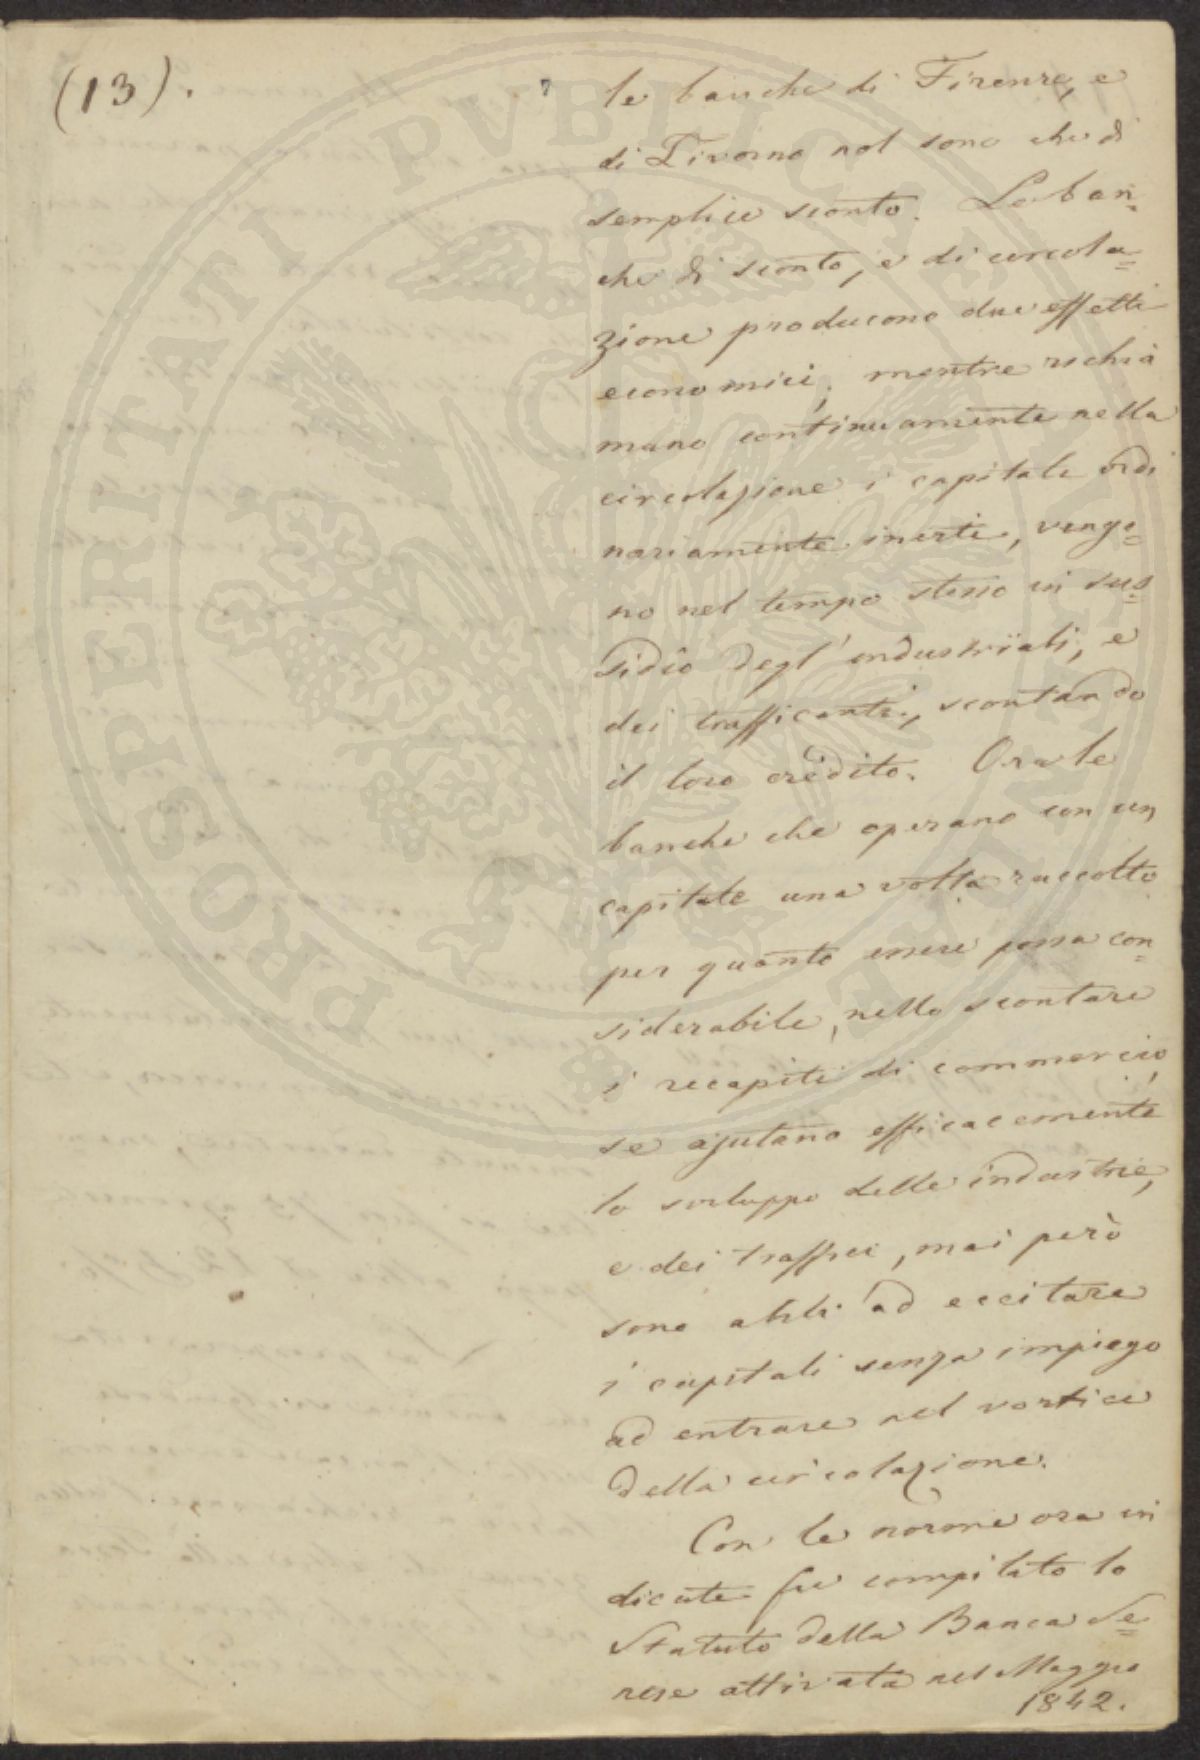 (13).
7
le banche di Firenze, e
di Livorno nol sono che di
semplice sconto. Le ban=
che di sconto, e di circola=
zione producono due effetti
economici; mentre richia
mano continuamente nella
circolazione i capitali ordi
nariamente inerti, vengo=
no nel tempo stesso in sus=
sidio degl'industriali, e
dei trafficanti, scontando
il loro credito. Ora le
banche che operano con un
capitale una volta raccolto
per quanto essere possa con=
siderabile, nello scontare
i recapiti di commercio,
se ajutano efficacemente
lo sviluppo delle industrie,
e dei traffici, mai però
sono abili ad eccitare
i capitali senza impiego
ad entrare nel vortice
della circolazione.
Con le norme ora in
dicate fu compilato lo
Statuto della Banca Se=
nese attivata nel Maggio
1842.
PROSPERITATI PVBLICAE